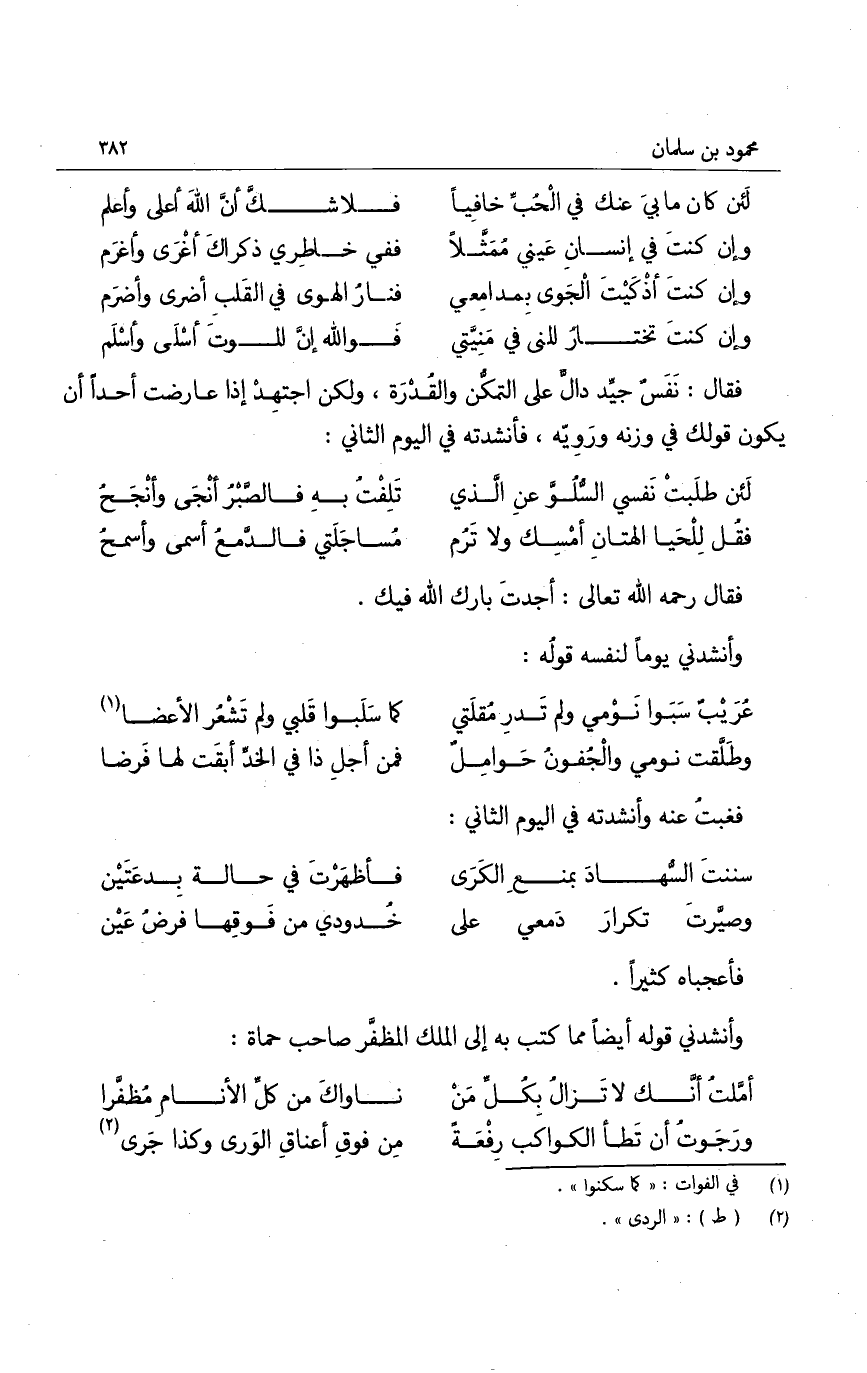 محمود بن سلمان ٣٨٢
لَئن كان ما بيَ عنك في الْحُبِّ خافياً فلا شكَّ أنَّ اللهَ أعلى وأعلم
وإن كنتَ في إنسانِ عَيني مُمَثَّلاً ففي خاطِري ذكراكَ أغْرَى وأغرَم
وإن كنتَ أذْكَيْتَ الْجَوى بمدامِعي فنارُ الهوى في القَلبِ أضرى وأضرَم
وإن كنتَ تختارُ للمنى في مَنِيَّتي فَوالله إنَّ للموتَ أسْلَى وأسْلَم
فقال : نَفَسٌ جيِّد دالٌّ على التمكّن والقُدْرَة ، ولكن اجتهدْ إذا عارضت أحداً أن
يكون قولك في وزنه ورَويّه ، فأنشدته في اليوم الثاني :
لَئن طلَبتْ نَفسي السُّلُوَّ عنِ الَّذي تَلِفْتُ بهِ فالصَّبْرُ أنْجَى وأنْجَحُ
فقُل لِلْحَيا الهتانِ أمْسِك ولا تَرُم مُساجَلَتي فالدَّمعُ أسمى وأسمحُ
فقال رحمه الله تعالى : أجدتَ بارك الله فيك .
وأنشدني يوماً لنفسه قولُه :
عُرَيْبٌ سَبَوا نَوْمي ولم تَدرِ مُقلَتي كما سَلَبوا قَلبي ولم تَشْعُر الأعضا(١)
وطَلَّقت نومي والْجُفونُ حَوامِلٌ فمن أجلِ ذا في الخدِّ أبقَت لها فَرضا
فغبتُ عنه وأنشدته في اليوم الثاني :
سننتَ السُّهادَ بمنعِ الكَرَى فأظهَرْتَ في حالة بِدعَتَيْن
وصيَّرتَ تكرارَ دَمعي على خُدودي من فَوقِها فرضُ عَيْن
فأعجباه كثيراً .
وأنشدني قوله أيضاً مما كتب به إلى الملك المظفَّر صاحب حماة :
أمَّلتُ أنَّك لا تَزالُ بِكُلِّ مَنْ ناواكَ من كلِّ الأنامِ مُظفَّرا
ورَجَوتُ أن تَطأ الكواكب رِفْعَةً مِن فوقِ أعناقِ الوَرى وكذا جَرى(٢)
(١) في الفوات : « كما سكنوا » .
(٢) ( ط ) : « الردى » .